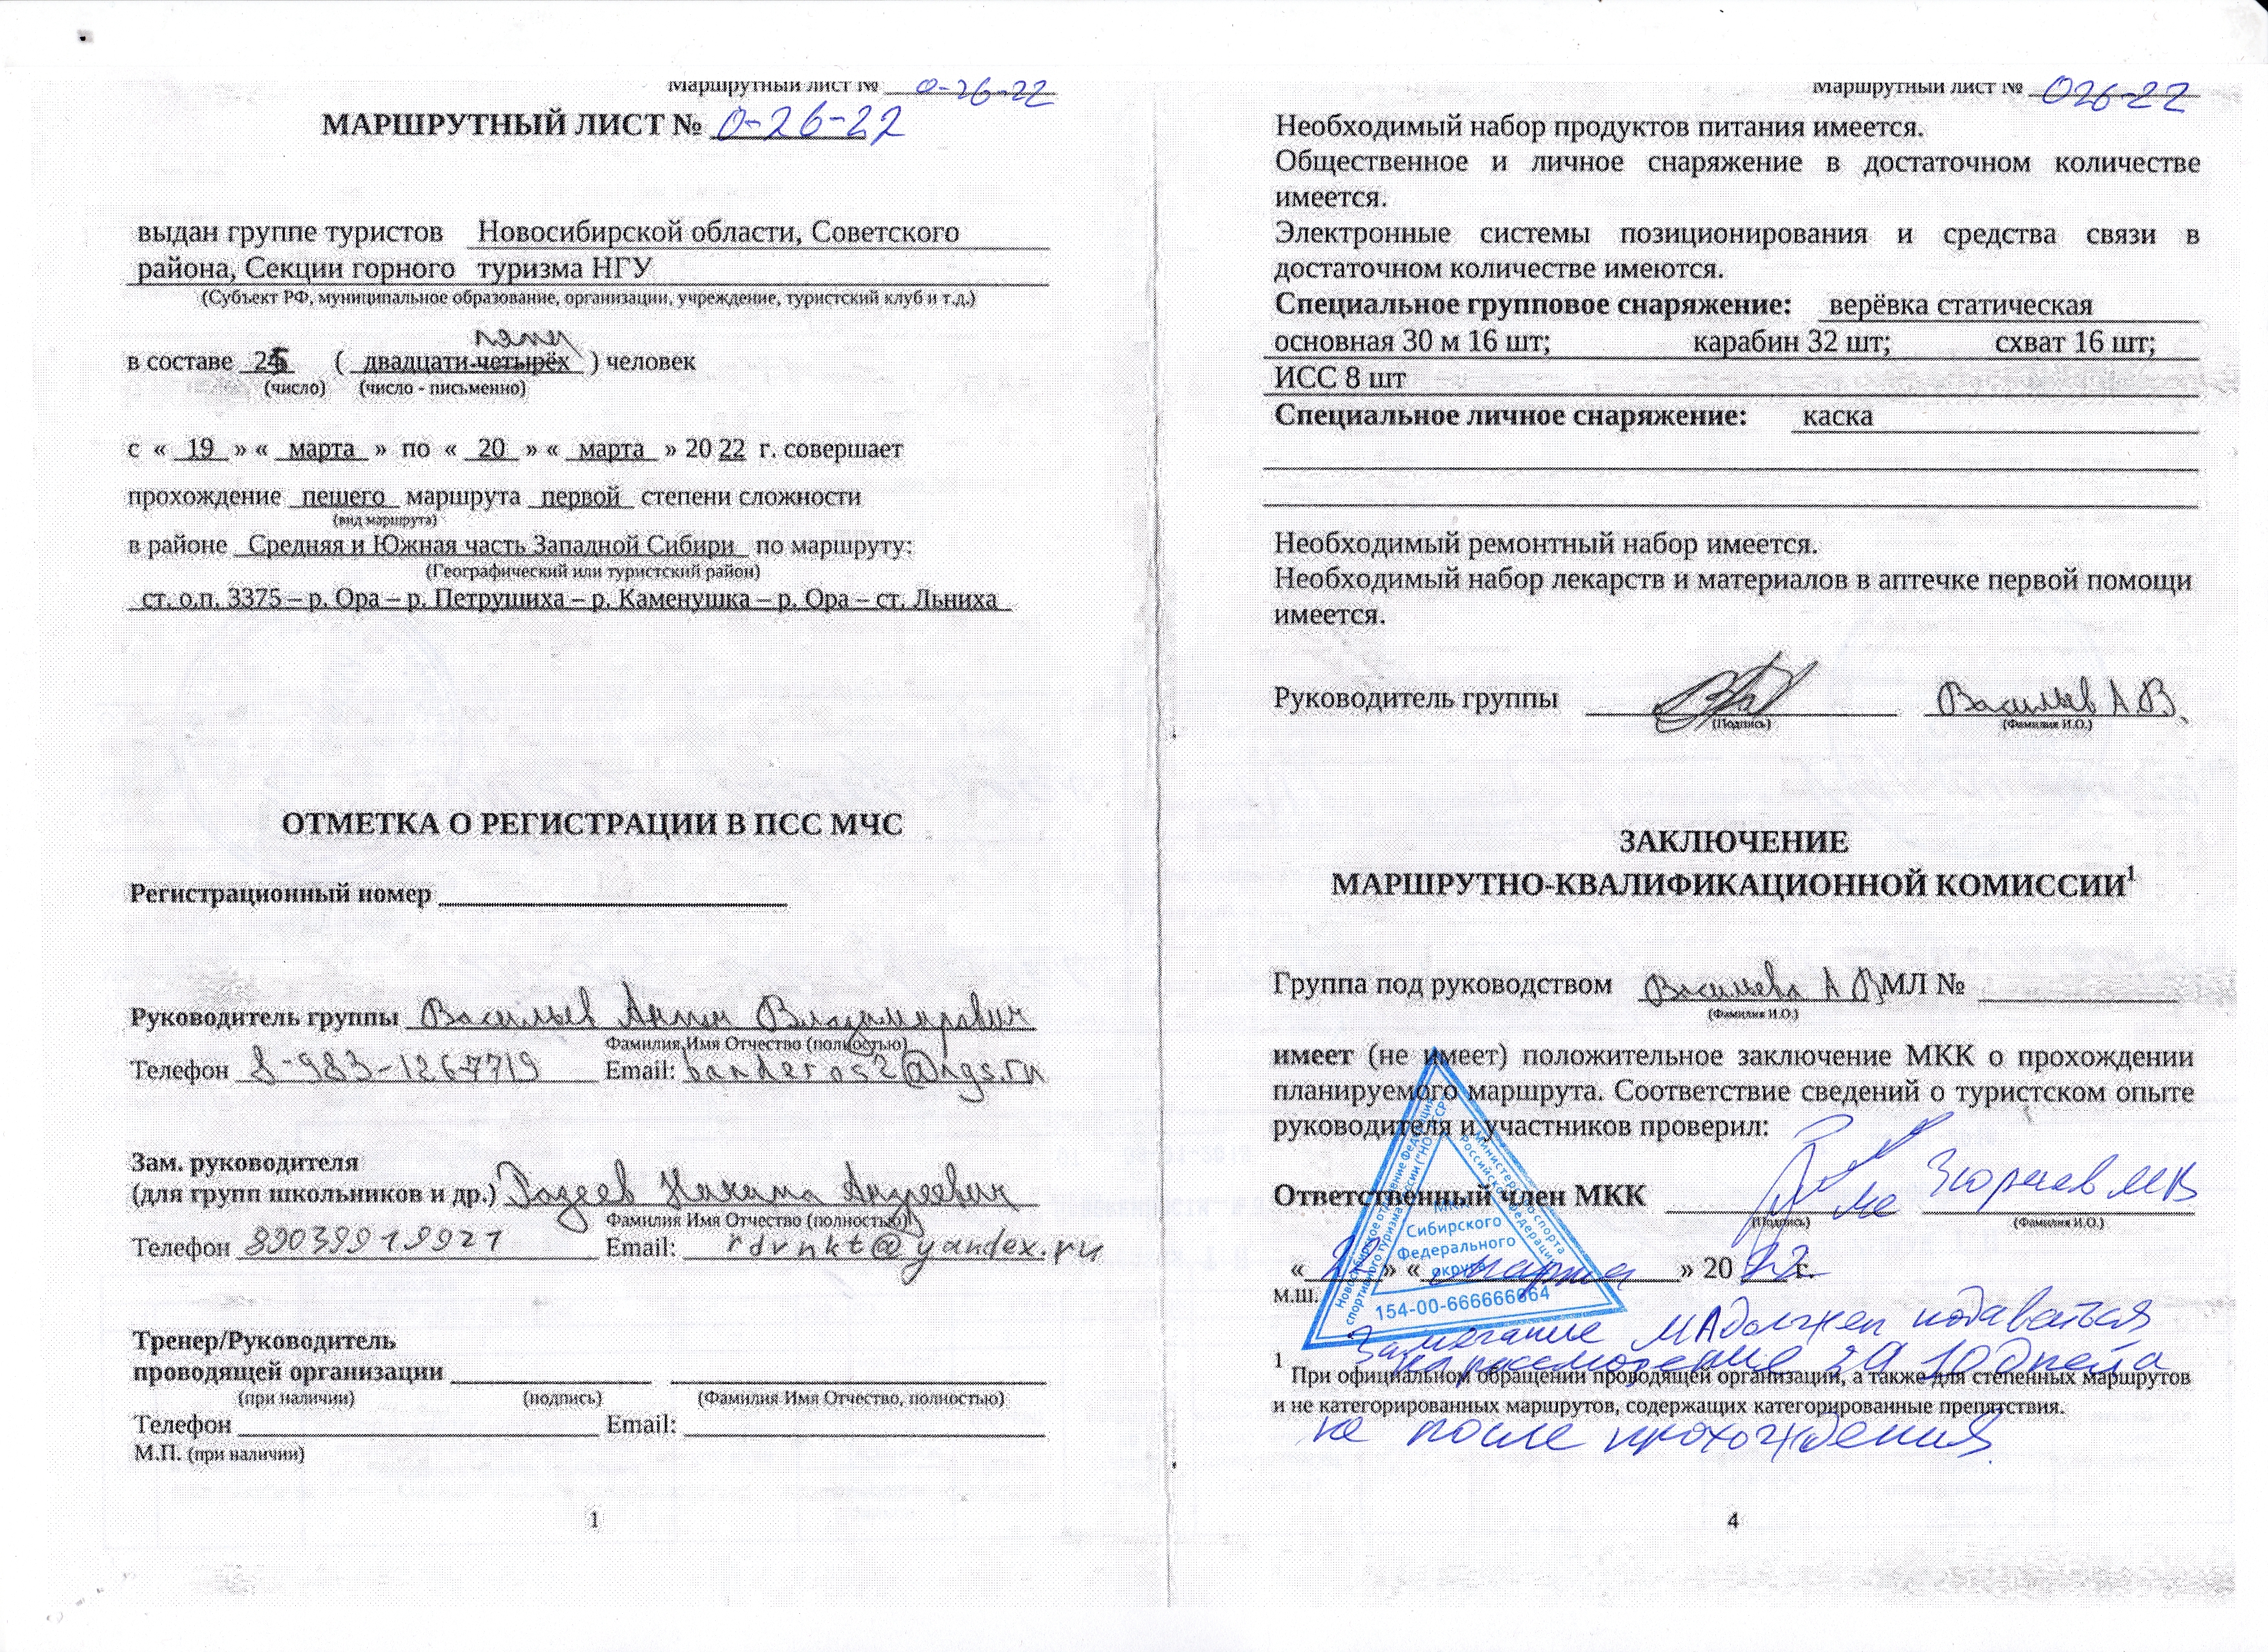 Маршрутный лист № 0-26-22
МАРШРУТНЫЙ ЛИСТ № 0-26-22
выдан группе туристов Новосибирской области, Советского
района, Секции горного туризма НГУ
(Субъект РФ, муниципальное образование, организации, учреждение, туристский клуб и т.д.)
пяти
в составе 25 ( двадцати четырёх ) человек
(число) (число - письменно)
с « 19 » « марта » по « 20 » « марта » 20 22 г. совершает
прохождение пешего маршрута первой степени сложности
(вид маршрута)
в районе Средняя и Южная часть Западной Сибири по маршруту:
(Географический или туристский район)
ст. о.п. 3375 – р. Ора – р. Петрушиха – р. Каменушка – р. Ора – ст. Льниха
ОТМЕТКА О РЕГИСТРАЦИИ В ПСС МЧС
Регистрационный номер
Руководитель группы Васильев Антон Владимирович
Фамилия Имя Отчество (полностью)
Телефон 8-983-1267719 Email: banderos2@ngs.ru
Зам. руководителя
(для групп школьников и др.) Никита Андреевич
Фамилия Имя Отчество (полностью)
Телефон 89039919921 Email: rdvnkt@yandex.ru
Тренер/Руководитель
проводящей организации
(при наличии) (подпись) (Фамилия Имя Отчество, полностью)
Телефон Email:
М.П. (при наличии)
1
Маршрутный лист № 026-22
Необходимый набор продуктов питания имеется.
Общественное и личное снаряжение в достаточном количестве
имеется.
Электронные системы позиционирования и средства связи в
достаточном количестве имеются.
Специальное групповое снаряжение: верёвка статическая
основная 30 м 16 шт; карабин 32 шт; схват 16 шт;
ИСС 8 шт
Специальное личное снаряжение: каска
Необходимый ремонтный набор имеется.
Необходимый набор лекарств и материалов в аптечке первой помощи
имеется.
Руководитель группы Васильев А.В.
(Подпись) (Фамилия И.О.)
ЗАКЛЮЧЕНИЕ
МАРШРУТНО-КВАЛИФИКАЦИОННОЙ КОМИССИИ1
Группа под руководством Васильева А В МЛ №
(Фамилия И.О.)
имеет (не имеет) положительное заключение МКК о прохождении
планируемого маршрута. Соответствие сведений о туристском опыте
руководителя и участников проверил:
Ответственный член МКК
(Подпись) (Фамилия И.О.)
« » « марта » 20 22 г.
М.Ш.
МКК
Сибирского
Федерального
округа
154-00-666666664
Замечание МЛ должен подаваться
на рассмотрение за 10 дней а
1 При официальном обращении проводящей организации, а также для степенных маршрутов
и не категорированных маршрутов, содержащих категорированные препятствия.
не после прохождения
4